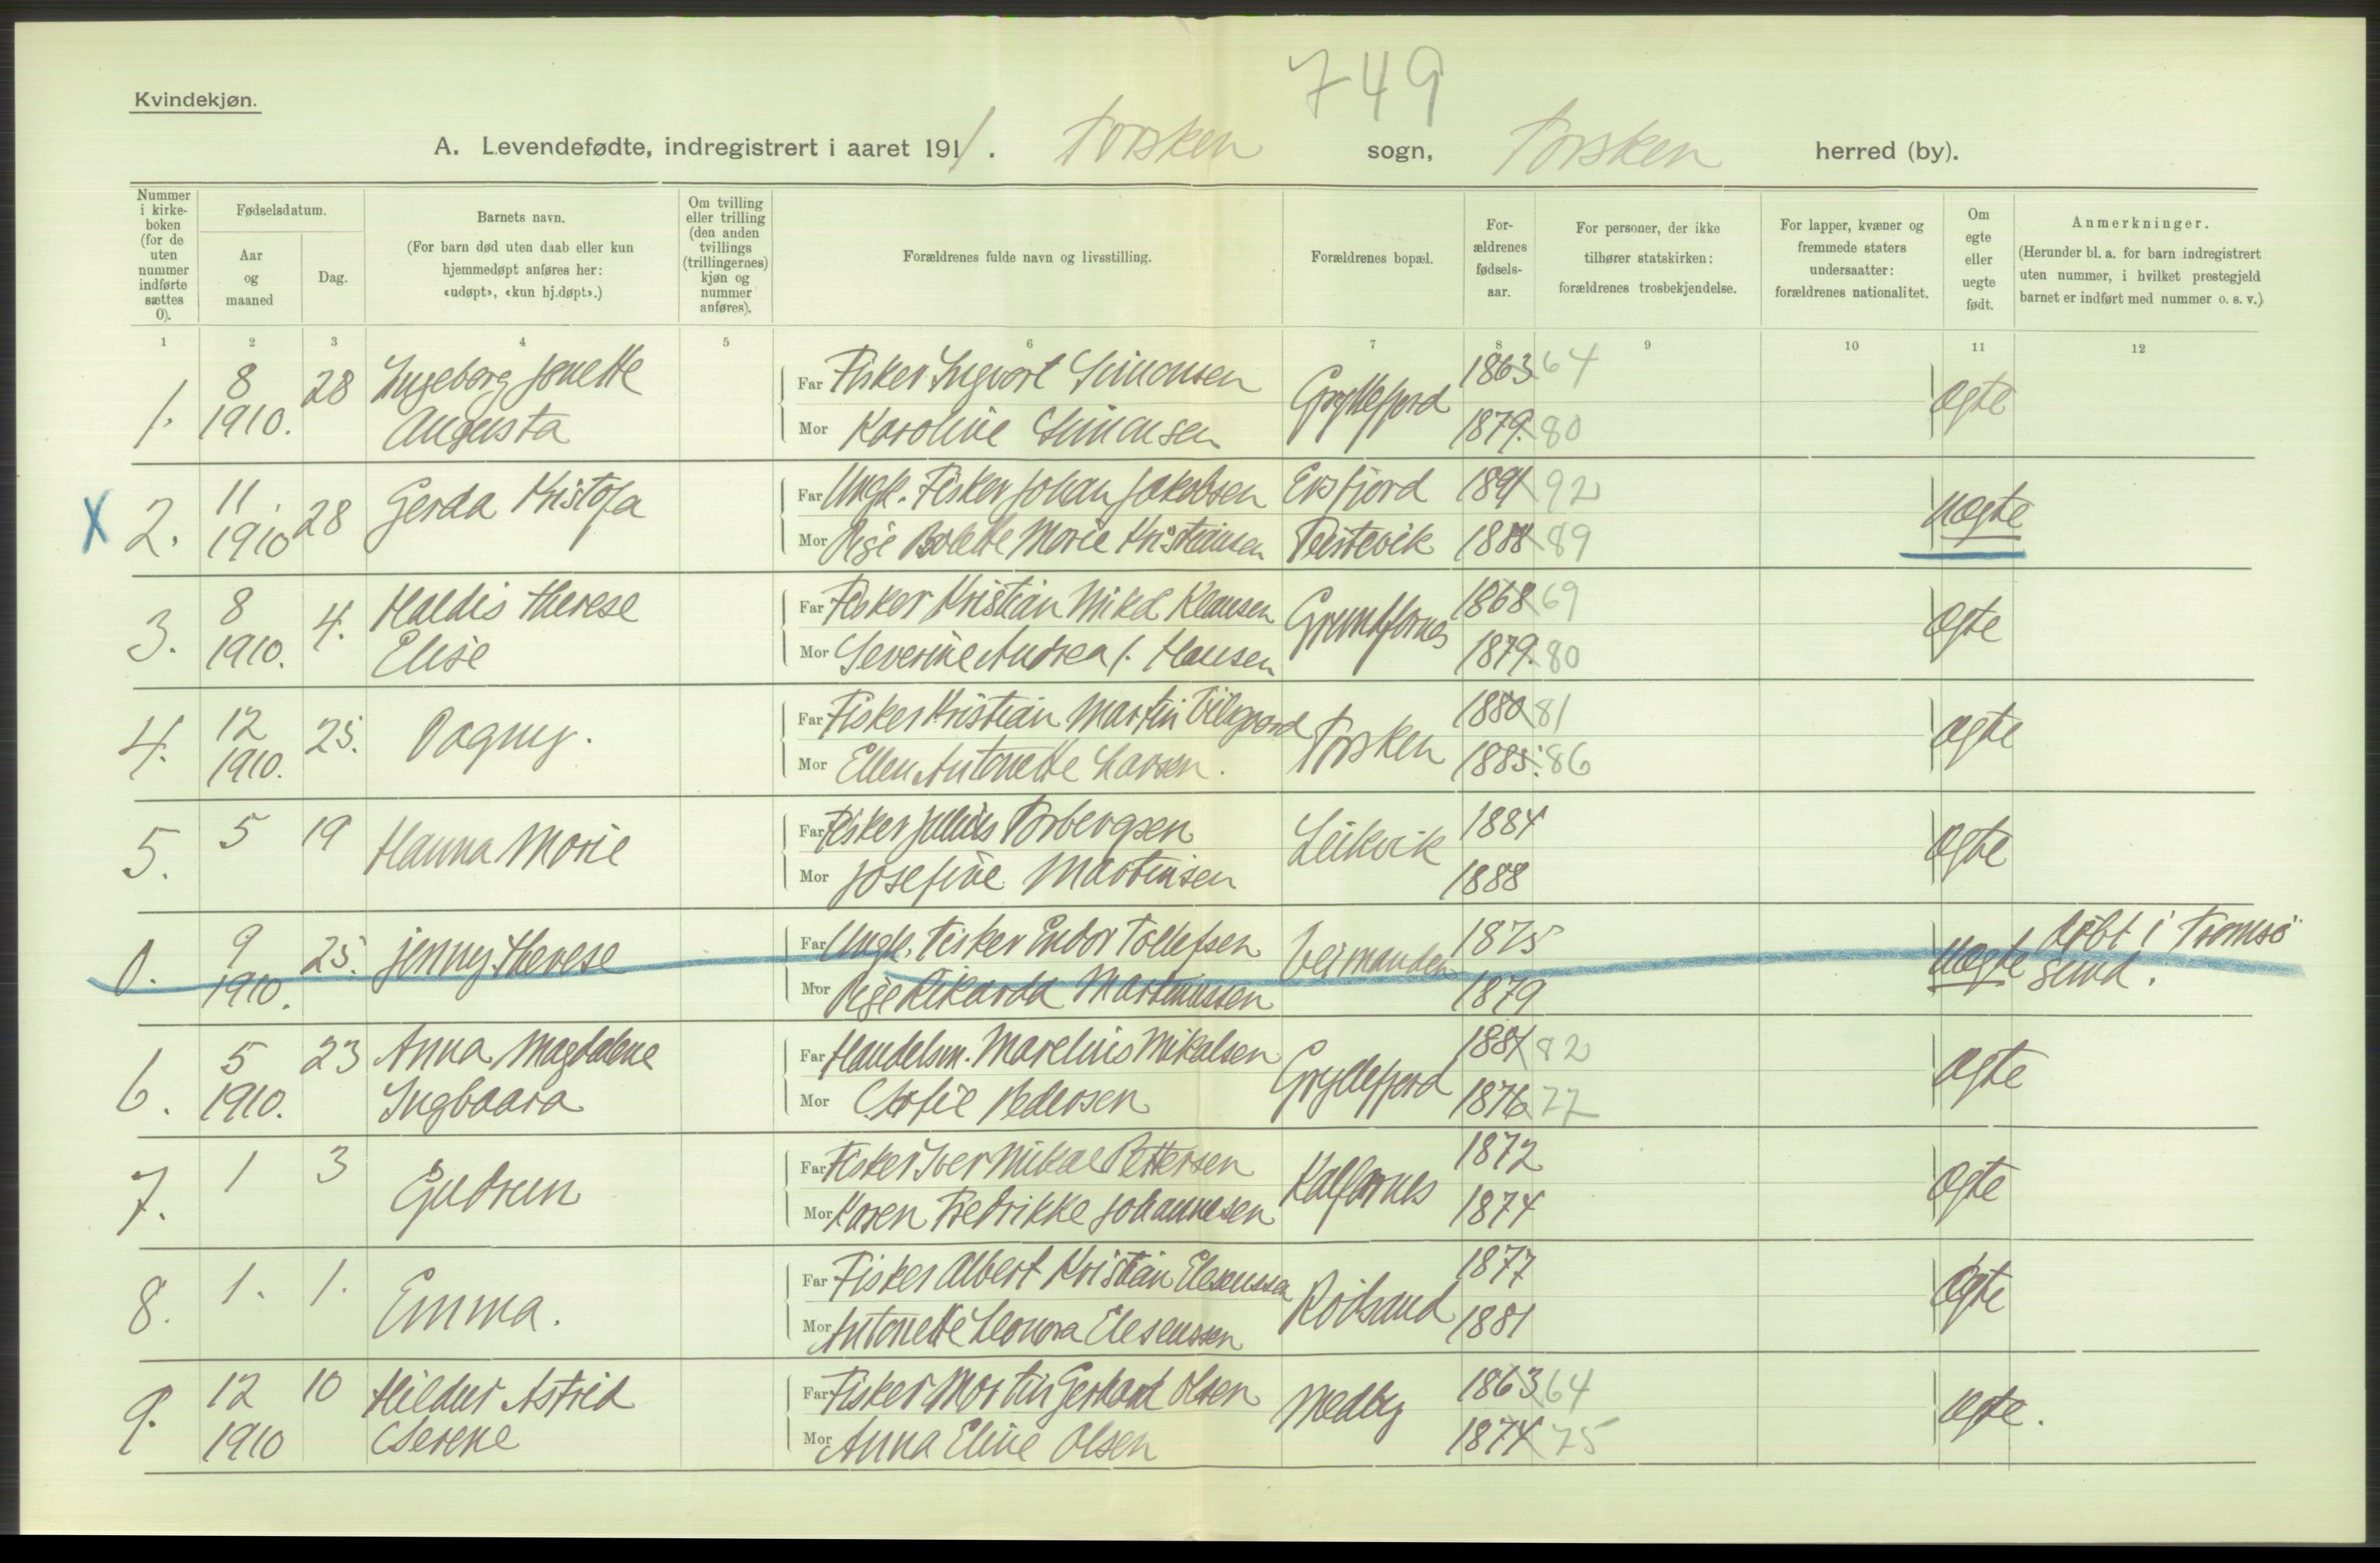 749
Kvindekjøn.
A. Levendefødte, indregistrert i aaret 1911. Torsken sogn, Torsken herred (by).
Nummer i kirke-boken (for de uten nummer indførte sættes 0).
Fødselsdatum.
Aar og maaned
Dag.
Barnets navn.
(For barn død uten daab eller kun hjemmedøpt anføres her: «udøpt», «kun hj.døpt».)
Om tvilling eller trilling (den anden tvillings (trillingernes) kjøn og nummer anføres).
Forældrenes fulde navn og livsstilling.
Forældrenes bopæl.
For-ældrenes fødsels-aar.
For personer, der ikke tilhører statskirken: forældrenes trosbekjendelse.
For lapper, kvæner og fremmede staters undersaatter: forældrenes nationalitet.
Om egte eller uegte født.
Anmerkninger.
(Herunder bl. a. for barn indregistrert uten nummer, i hvilket prestegjeld barnet er indført med nummer o. s. v.)
1 2 3 4 5 6 7 8 9 10 11 12
1. 8 1910. 28 Ingeborg Jonette Augusta
Far Fisker Ingvart Simonsen Gryllefjord 1863 64 ægte
Mor Karoline Simonsen 1879. 80
X 2. 11. 1910 28 Gerda Kristofa
Far Ungk. Fisker Johan Jakobsen Ersfjord 1891 92 uægte
Mor Pige Bolette Marie Kristiansen Teistevik 1888 89
3. 8 1910. 4. Haldis Therese Elise
Far Fisker Kristian Mikal Klausen 1868 69 ægte
Mor Severine Andrea f. Hansen 1879. 80
4. 12 1910. 25. Dagny.
Far Fisker Kristian Martin Torsken 1880 81 ægte
Mor Ellen Antonette Larsen. 1885. 86
5. 5 19 Hanna Marie
Far Fisker Julius Torbergsen Leikvik 1884 ægte
Mor Josefine Martinsen 1888
0. 9 1910. 25. Jenny Therese
Far Ungk. Fisker Endor Tollefsen Veimanden 1875 uægte døbt i Tromsö
Mor Pige Rikarda Martinussen 1879 sund.
6. 5 1910. 23 Anna Magdalene Ingbaara
Far Handelsm. Marelius Mikalsen Gryllefjord 1881 82 ægte
Mor Sofie Pedersen 1876 77
7. 1 3 Gudrun
Far Fisker Iver Mikal Pettersen Kalfarnes 1872 ægte
Mor Karen Fredrikke Johannesen 1874
8. 1. 1. Emma.
Far Fisker Albert Kristian Elesenssen Rödsand 1877 ægte
Mor Antonette Leonora Elesenssen 1881
9. 12 1910 10 Hildur Astrid Serene
Far Fisker Martin Gerhard Olsen Medby 1863 64 ægte.
Mor Anna Eline Olsen 1874 75